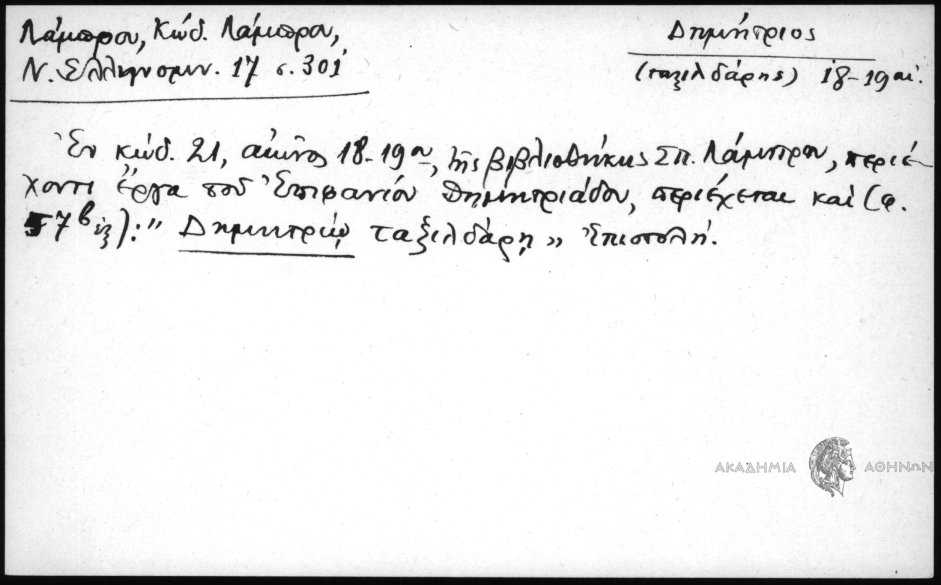 Λάμπρου, Κώδ. Λάμπρου,
Ν. Ἑλληνομν. 17 σ. 301
Δημήτριος
(ταξιλδάρης) 18-19 αἰ.
Ἐν κώδ. 21, αἰῶνος 18-19ου, τῆς βιβλιοθήκης Σπ. Λάμπρου, περιέ-
χοντι ἔργα τοῦ Ἐπιφανίου Δημητριάδου, περιέχεται καὶ (φ.
57β ἑξ): " Δημητρίῳ ταξιλδάρῃ „ Ἐπιστολή.
ΑΚΑΔΗΜΙΑ ΑΘΗΝΩΝ